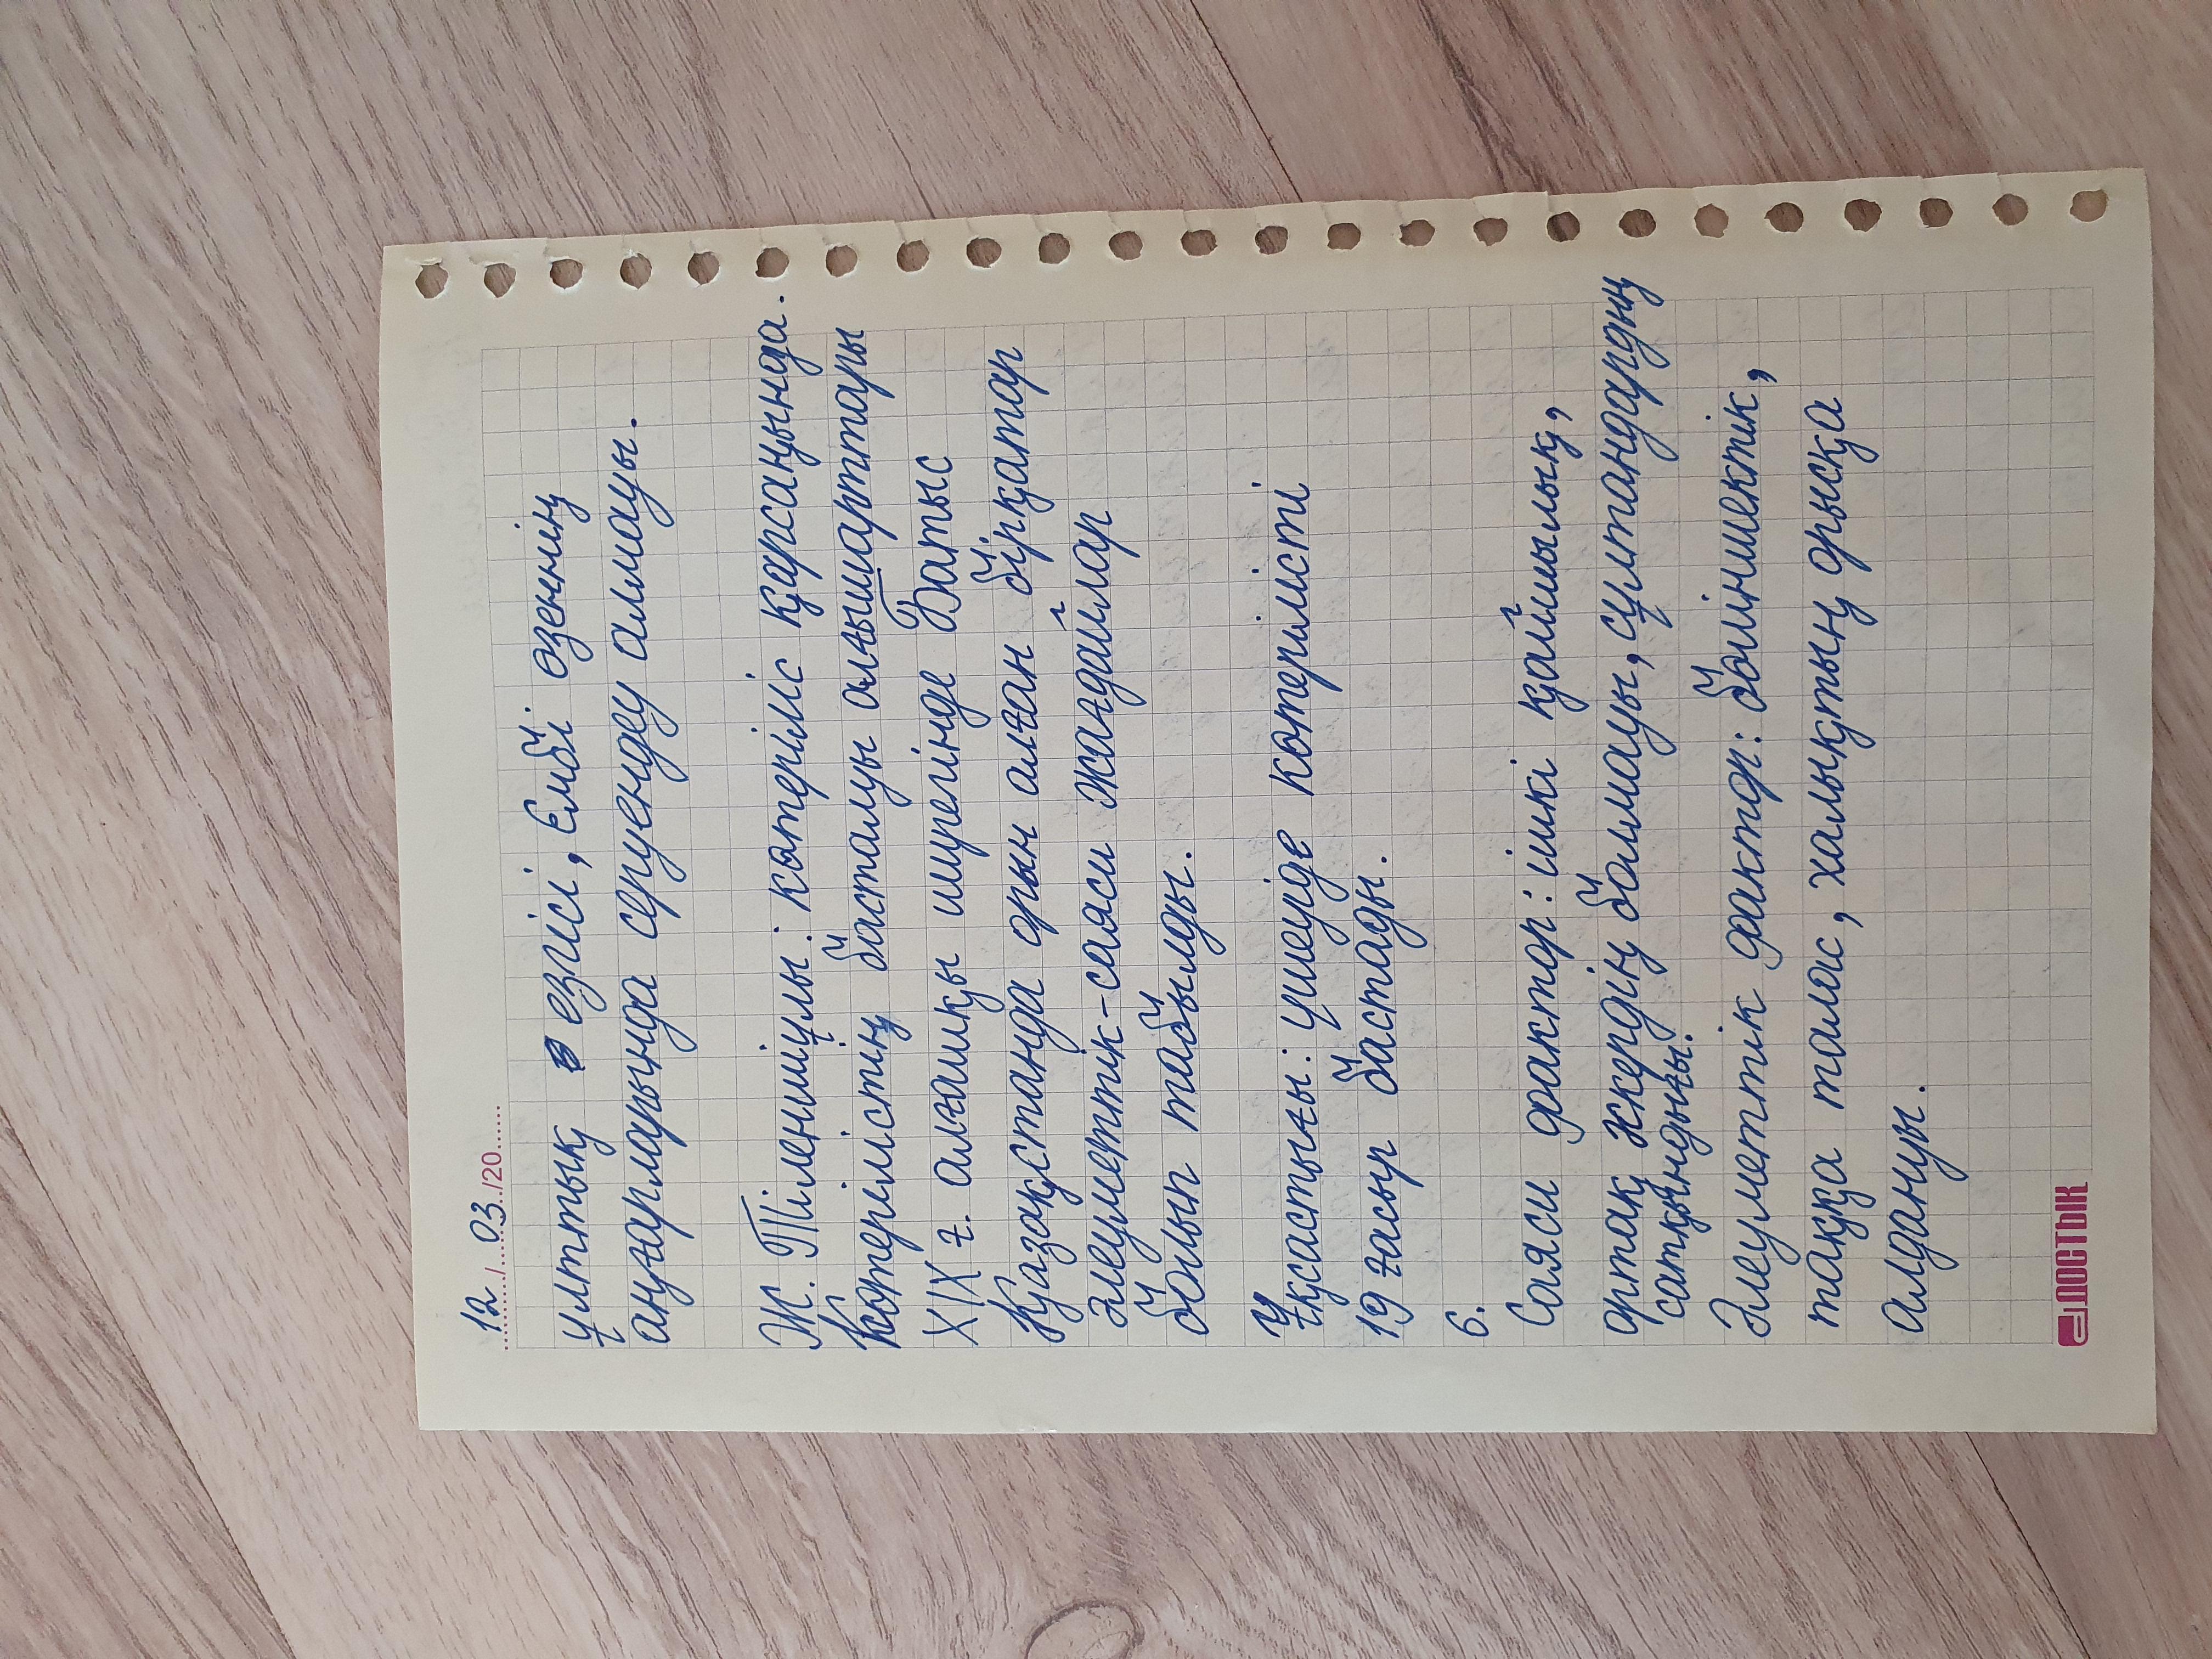 12 / 03 /20
ұлттық езгісі, Ембі өзенінің
аңғарларыңда серуендеу алмауы.
Ж. Тіленшіұлы: көтеріліс қарсаңында.
Көтерілістің басталуы алғышарттары
XIX ғ. алғашқы ширегінде Батыс
Қазақстанда орын алған бірқатар
әлеуметтік-саяси жағдайлар
болып табылды.
Ұқсастығы: үшеуіде көтерілісті
19 ғасыр бастады.
6.
Саяси фактор: ішкі қайшылық,
ортақ әскердің болмауы, сұлтандардың
сатқындығы.
Әлеуметтік фактор: бөліншектік,
таққа талас, халықтың орысқа
алдануы.
ДОСТЫК